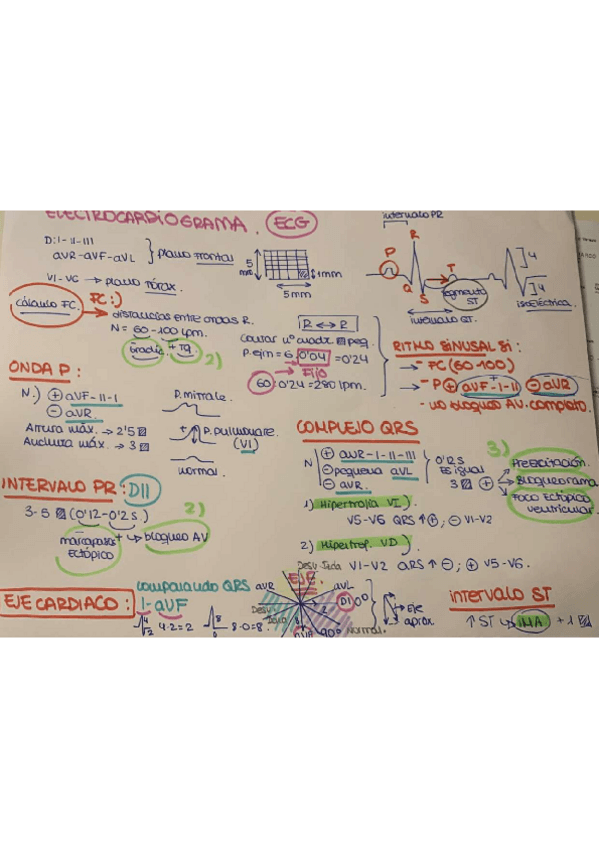 ELECTROCARDIOGRAMA. ECG
D: I - II - III
aVR - aVF - aVL } plano frontal
V1 - V6 → plano tórax.
5 mm
1mm
5 mm
intervalo PR
P
R
Q
S
T
segmento ST
intervalo QT.
4
4
isoeléctrica.
cálculo FC.
FC:)
distancias entre ondas R.
N = 60-100 lpm.
Bradic. + Tq
2)
R ↔ R
Contar nº cuadr. peq.
P. ejm = 6 · 0'04 = 0'24
→ Fijo
60 : 0'24 = 250 lpm.
RITMO SINUSAL Si:
→ FC (60-100)
→ P ⊕ aVF - I - II ⊖ aVR
- no bloqueo AV. completo.
ONDA P:
N.) ⊕ aVF - II - I
⊖ aVR.
Altura máx. → 2'5
Anchura máx. → 3
P. mitrale.
P. pulmonare.
(V1)
normal.
COMPLEJO QRS
N ⊕ aVR - I - II - III
⊖ pequeña aVL
⊖ aVR.
0'12 s
Es igual
3
3)
Preexcitación.
Bloqueo rama
Foco Ectópico ventricular.
1) Hipertrofia VI).
V5-V6 QRS ↑ ⊕; ⊖ V1-V2
2) Hipertrof. VD).
V1-V2 QRS ↑ ⊖; ⊕ V5-V6.
INTERVALO PR: DII
3-5 (0'12-0'2 s.)
2)
marcapasos Ectópico
+ → bloqueo AV
EJE CARDIACO:
comparando QRS
I - aVF
4
2
4-2=2
8
0
8-0=8
aVR
EJE
aVL
DI 0º
aVF
90º
Normal.
Eje aprox.
INTERVALO ST
↑ ST → IMA + 1